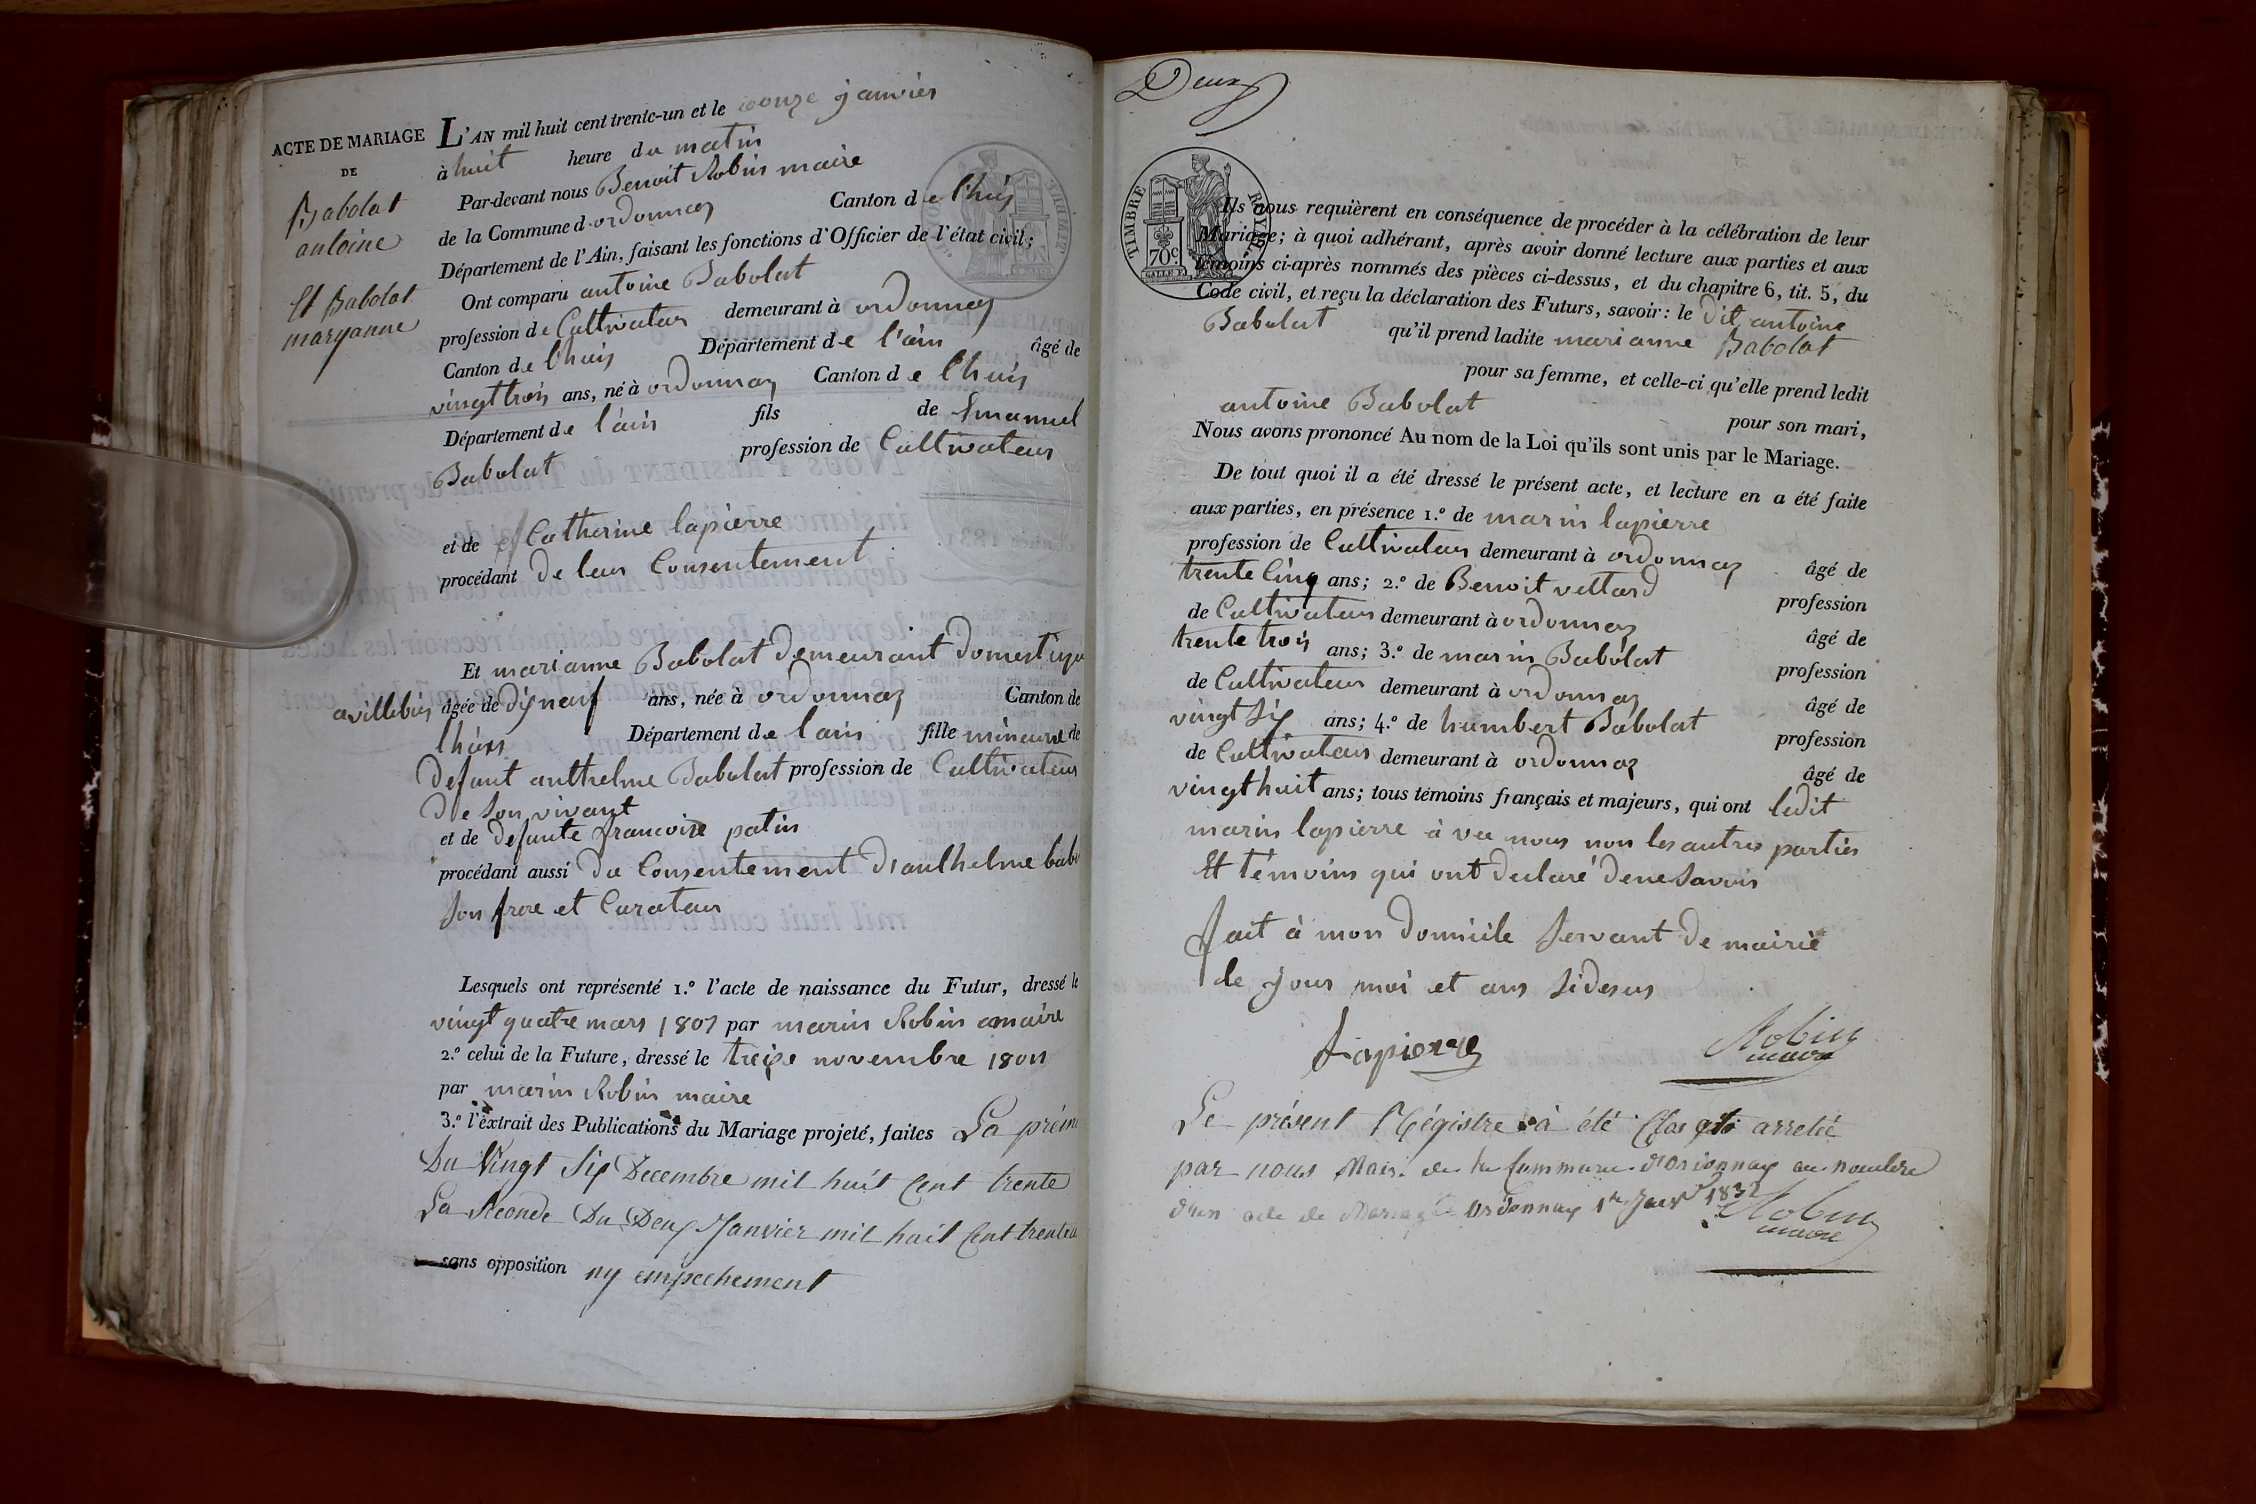 ACTE DE MARIAGE
DE
Babolat
antoine
Et Babolat
maryanne
L'AN mil huit cent trente-un et le douze janvier
à huit heure du matin
Par-devant nous Benoit Robin maire
de la Commune d'ordonnaz Canton de l'huis
Département de l'Ain, faisant les fonctions d'Officier de l'état civil;
Ont comparu antoine Babolat
profession de Cultivateur demeurant à ordonnaz
Canton de l'huis Département de l'ain âgé de
vingt trois ans, né à ordonnaz Canton de l'huis
Département de l'ain fils de Emanuel
Babolat profession de Cultivateur
et de Catherine lapierre
procédant de leur Consentement
Et marianne Babolat demeurant domestique
a villebois âgée de dix neuf ans, née à ordonnaz Canton de
lhuis Département de lain fille mineure de
defunt anthelme Babolat profession de Cultivateur
de Son vivant
et de defunte francoise patin
procédant aussi du Consentement d'anthelme babo
Son frere et Curateur
Lesquels ont représenté 1.º l'acte de naissance du Futur, dressé le
vingt quatre mars 1807 par marin Robin maire
2.º celui de la Future, dressé le treize novembre
par marin Robin maire
3.º l'extrait des Publications du Mariage projeté, faites La premi
Du Vingt Six Decembre mil huit Cent trente
La Seconde Du Deux Janvier mil huit Cent trente
sans opposition ny empechement
Deux
TIMBRE ROYAL
70 c.
Ils nous requièrent en conséquence de procéder à la célébration de leur
Mariage; à quoi adhérant, après avoir donné lecture aux parties et aux
témoins ci-après nommés des pièces ci-dessus, et du chapitre 6, tit. 5, du
Code civil, et reçu la déclaration des Futurs, savoir: le dit antoine
Babolat qu'il prend ladite marianne Babolat
pour sa femme, et celle-ci qu'elle prend ledit
antoine Babolat pour son mari,
Nous avons prononcé Au nom de la Loi qu'ils sont unis par le Mariage.
De tout quoi il a été dressé le présent acte, et lecture en a été faite
aux parties, en présence 1.º de marin lapierre
profession de Cultivateur demeurant à ordonnaz âgé de
trente Cinq ans; 2.º de Benoit vettard profession
de Cultivateur demeurant à ordonnaz âgé de
trente trois ans; 3.º de marin Babolat profession
de Cultivateur demeurant à ordonnaz âgé de
vingt Six ans; 4.º de humbert Babolat profession
de Cultivateur demeurant à ordonnaz âgé de
vingt huit ans; tous témoins français et majeurs, qui ont ledit
marin lapierre à vec nous non les autres parties
Et témoins qui ont declaré de ne Savoir
fait à mon domicile Servant de mairie
le jour moi et ans Sidesus
Lapierre
Robin
maire
Le présent Régistre à été Clos et arreté
par nous Maire de la Commune d'Ordonnaz au nombre
d'un acte de Mariage Ordonnaz 1er Janvr 1832
Robin
maire